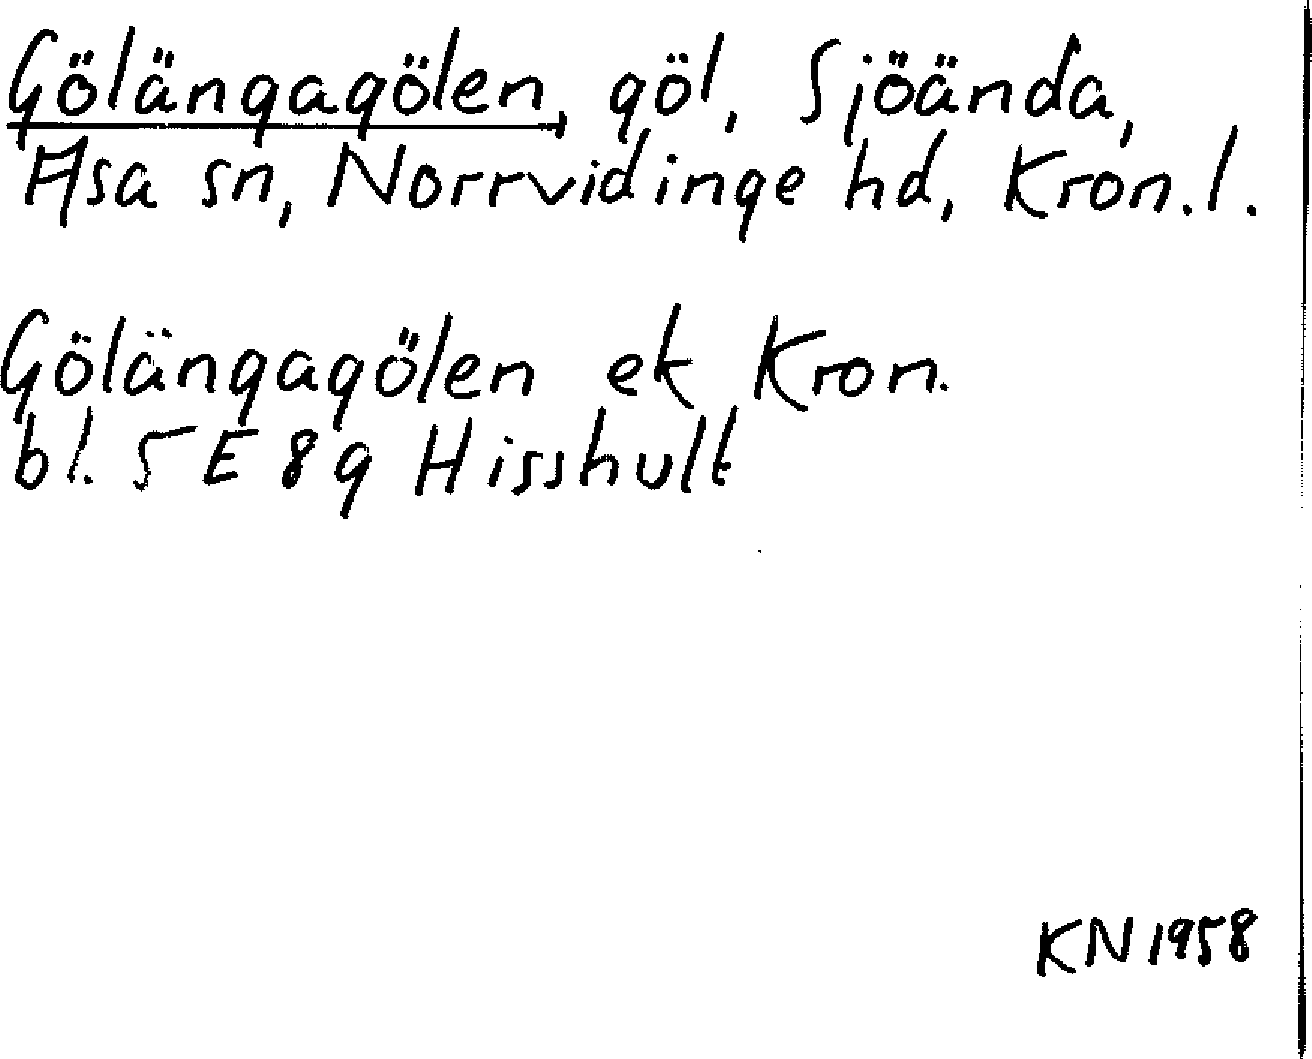 Gölängagölen, göl, Sjöända,
Asa sn, Norrvidinge hd, Kron.l.
Gölängagölen ek Kron.
bl. 5E 8g Hisshult
KN 1958